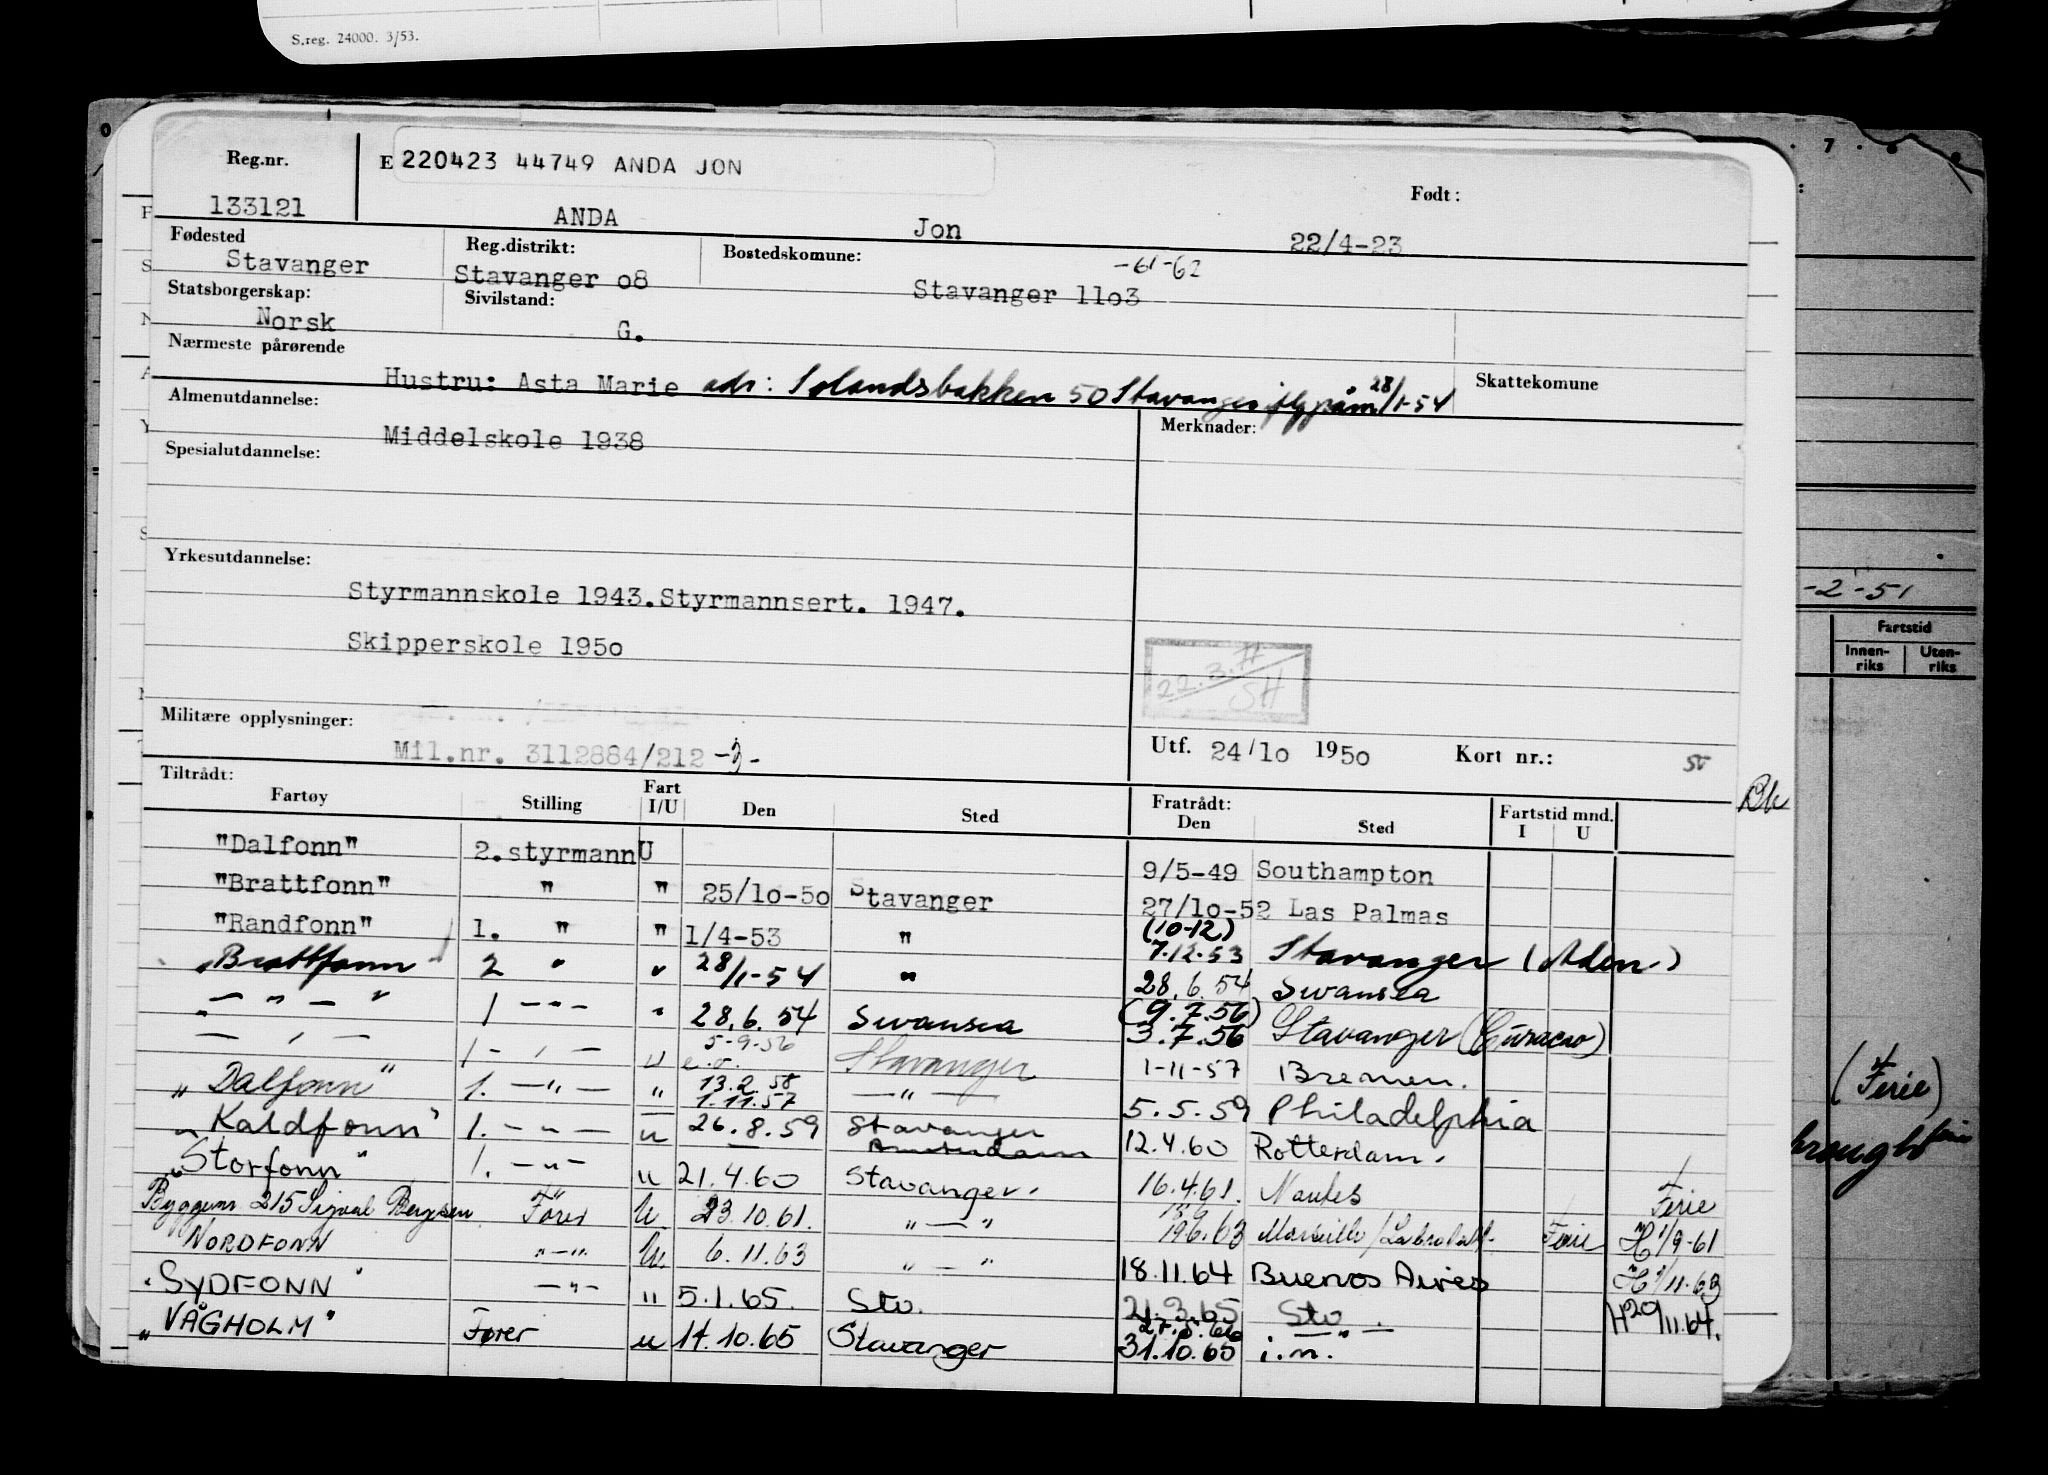 S.reg. 24000. 3/53.
Reg.nr. E 220423 44749 ANDA JON
Født:
133121 ANDA Jon 22/4-23
Fødested Reg.distrikt: Bostedskomune: -61-62
Stavanger Stavanger o8 Stavanger 11o3
Statsborgerskap: Sivilstand:
Norsk G.
Nærmeste pårørende Skattekomune
Hustru: Asta Marie adr: Solandsbakken 50 Stavanger 28/1-54
Almenutdannelse: Merknader:
Middelskole 1938
Spesialutdannelse:
Yrkesutdannelse:
Styrmannskole 1943. Styrmannsert. 1947.
Skipperskole 195o
22.3.71 SH
Militære opplysninger:
Mil.nr. 3112884/212 -3-
Utf. 24/1o 195o Kort nr.:
Tiltrådt: Fratrådt: Fartstid mnd.
Fartøy Stilling Fart I/U Den Sted Den Sted I U
"Dalfonn" 2.styrmann U 9/5-49 Southampton
"Brattfonn" " " 25/1o-5o Stavanger 27/1o-52 Las Palmas
"Randfonn" 1. " " 1/4-53 " (10-12) 7.12.53 Stavanger (Aden)
"Brattfonn" 2 " " 28/1-54 " 28.6.54 Swansea
— " — " 1 — " — " 28.6.54 Swansea (9.7.56) 3.7.56 Stavanger (Curacao)
— " — 1 - " — U 5-9-56 Stavanger 1-11-57 Bremen.
"Dalfonn" 1. — " — " 13.2.58 1.11.57 — " — 5.5.59 Philadelphia
"Kaldfonn" 1. — " — u 26.8.59 Stavanger Amsterdam 12.4.60 Rotterdam.
"Storfonn" 1. — " — u 21.4.60 Stavanger. 16.4.61. Nantes Ferie
Byggenr. 215 Sigval Bergesen Fører U 23.10.61. " — " 19.6.63 Marseille/ Ferie H 1/9-61
NORDFONN " — " U 6.11.63 " — " 18.11.64 Buenos Aires H 1/11-63
"SYDFONN" — " — " 5.1.65. Stv. 21.3.65 Stv. H 20/11.64.
"VÅGHOLM" Fører u 14.10.65 Stavanger 27.5.66 — " — 31.10.65 i.n.
-2-51
Fartstid
Innenriks Utenriks
(Ferie)